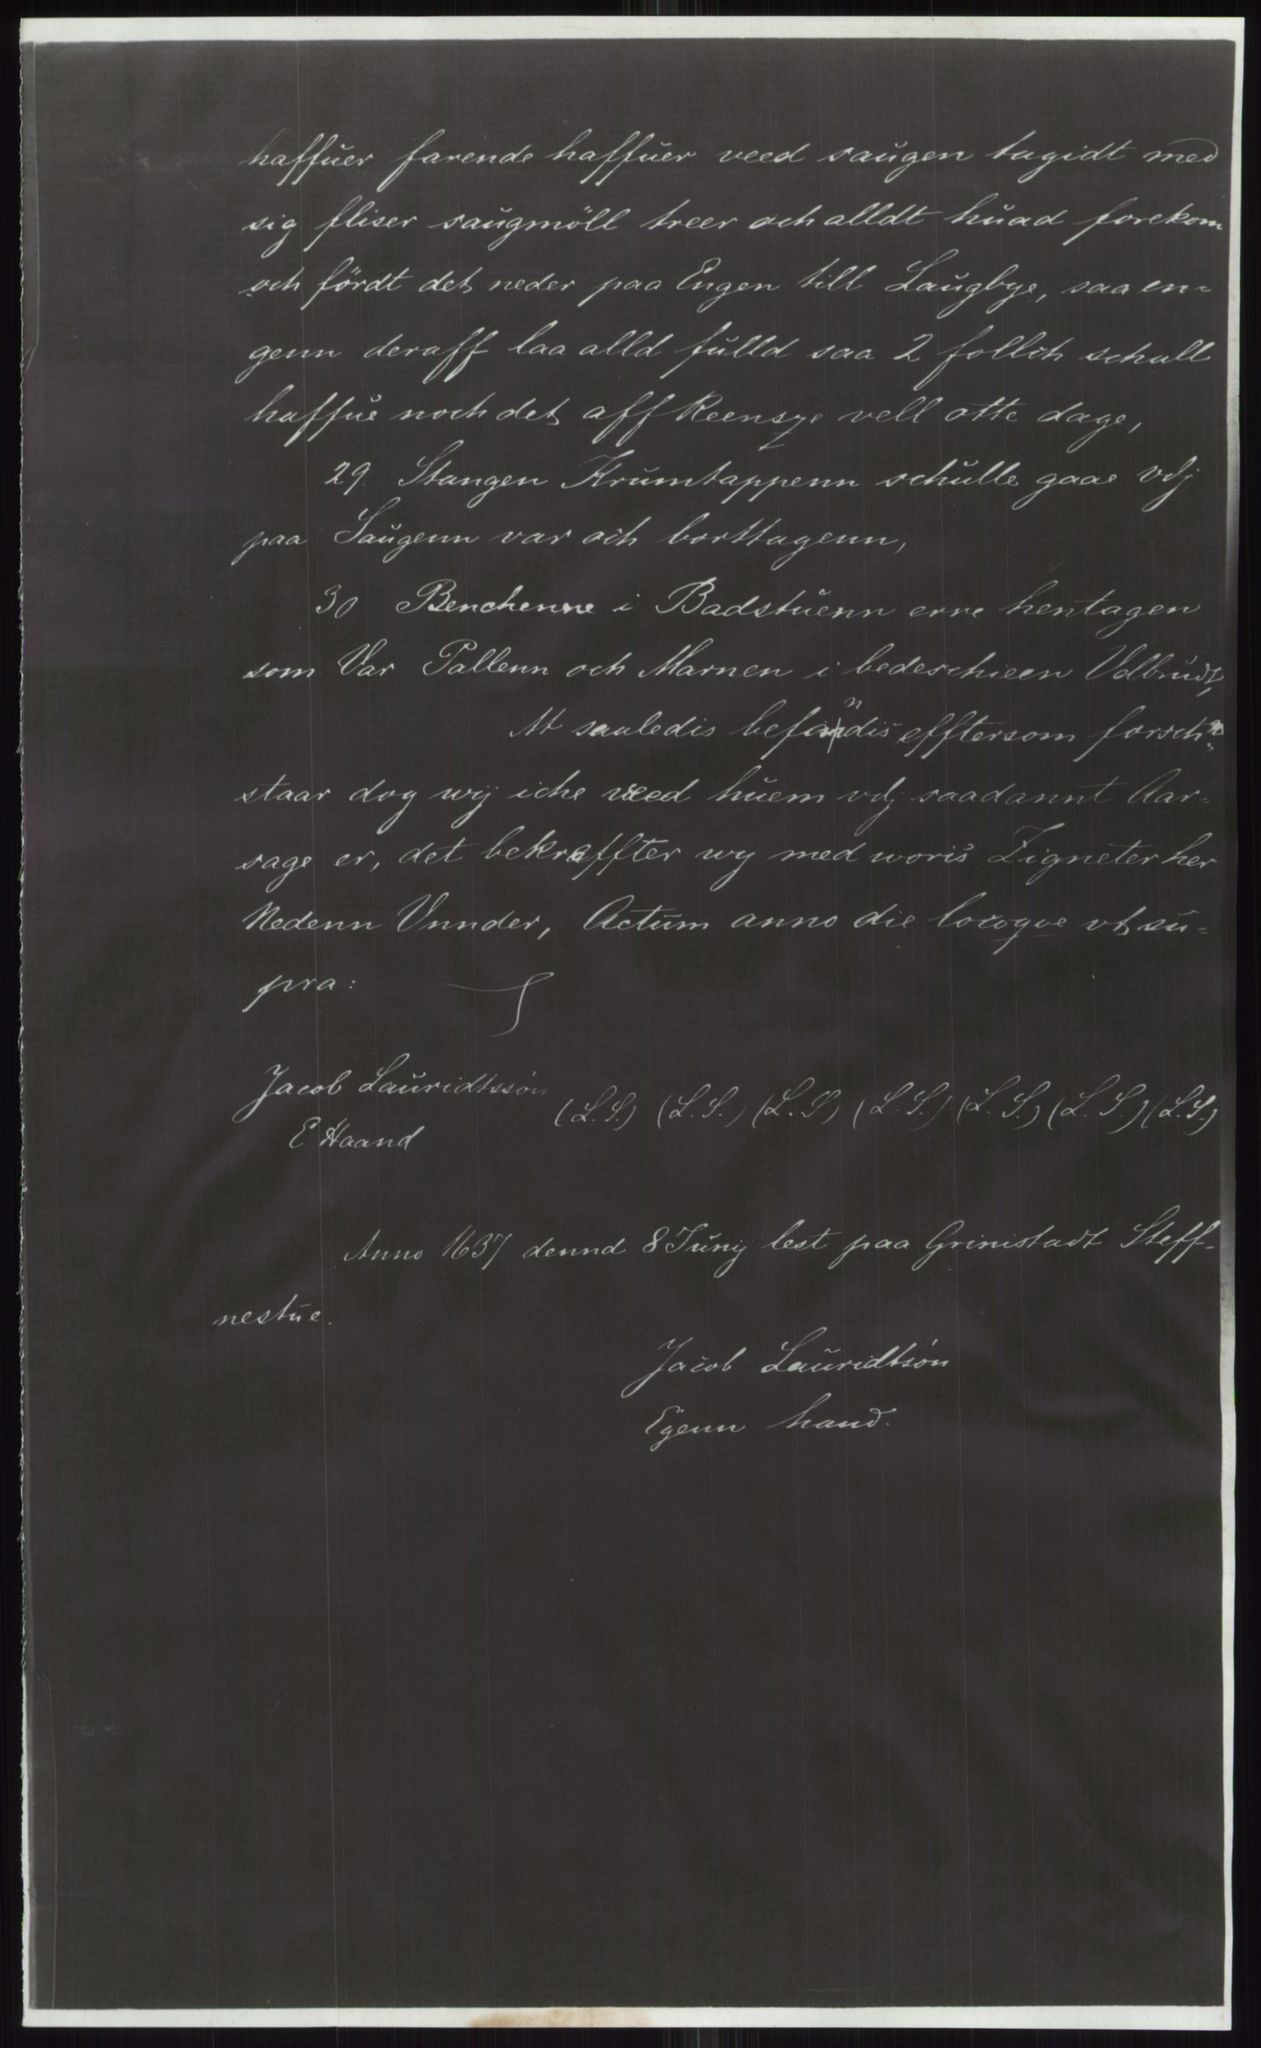 haffuer farende haffuer veed saugen tagidt med
sig fliser saugmöll treer och alldt huad forekom
och fördt det neder paa Engen till Laugbye, saa en=
genn deraff laa alld fulld saa 2 follch schall
haffue noch det aff Reensze vell otte dage,
29. Stangen Krumtappenn schulle gaae vdj
paa Saugenn var och borttagenn,
30 Benchenne i Badstuenn erre hentagen
som Var Pallenn och Marnen i bedeschieen Vdbrudt,
At saaledis befandis efftersom forsch:
staar dog wij iche veed huem vdj saadannt Aar=
sage er, det bekreffter wy med woris Zigneter her
Nedenn Vnnder, Actum anno die locoqve vt su=
pra:
Jacob Lauridtssön (L.S.) (L.S.) (L.S.) (L.S.) (L.S.) (L.S.) (L.S.)
E Haand
Anno 1637 dennd 8 Junij lest paa Grimstadt Steff-
nestue.
Jacob Lauridtsón
Egenn hand.